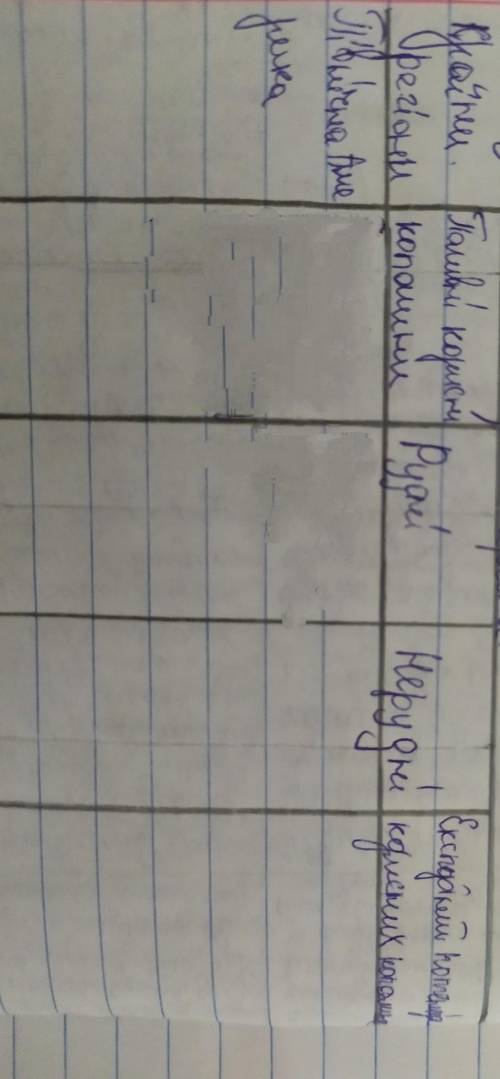 Країни.
регіони
Паливні корисні
копалини
Рудні
Нерудні
Експортний потенціал
корисних копалин
Північна Аме
рика